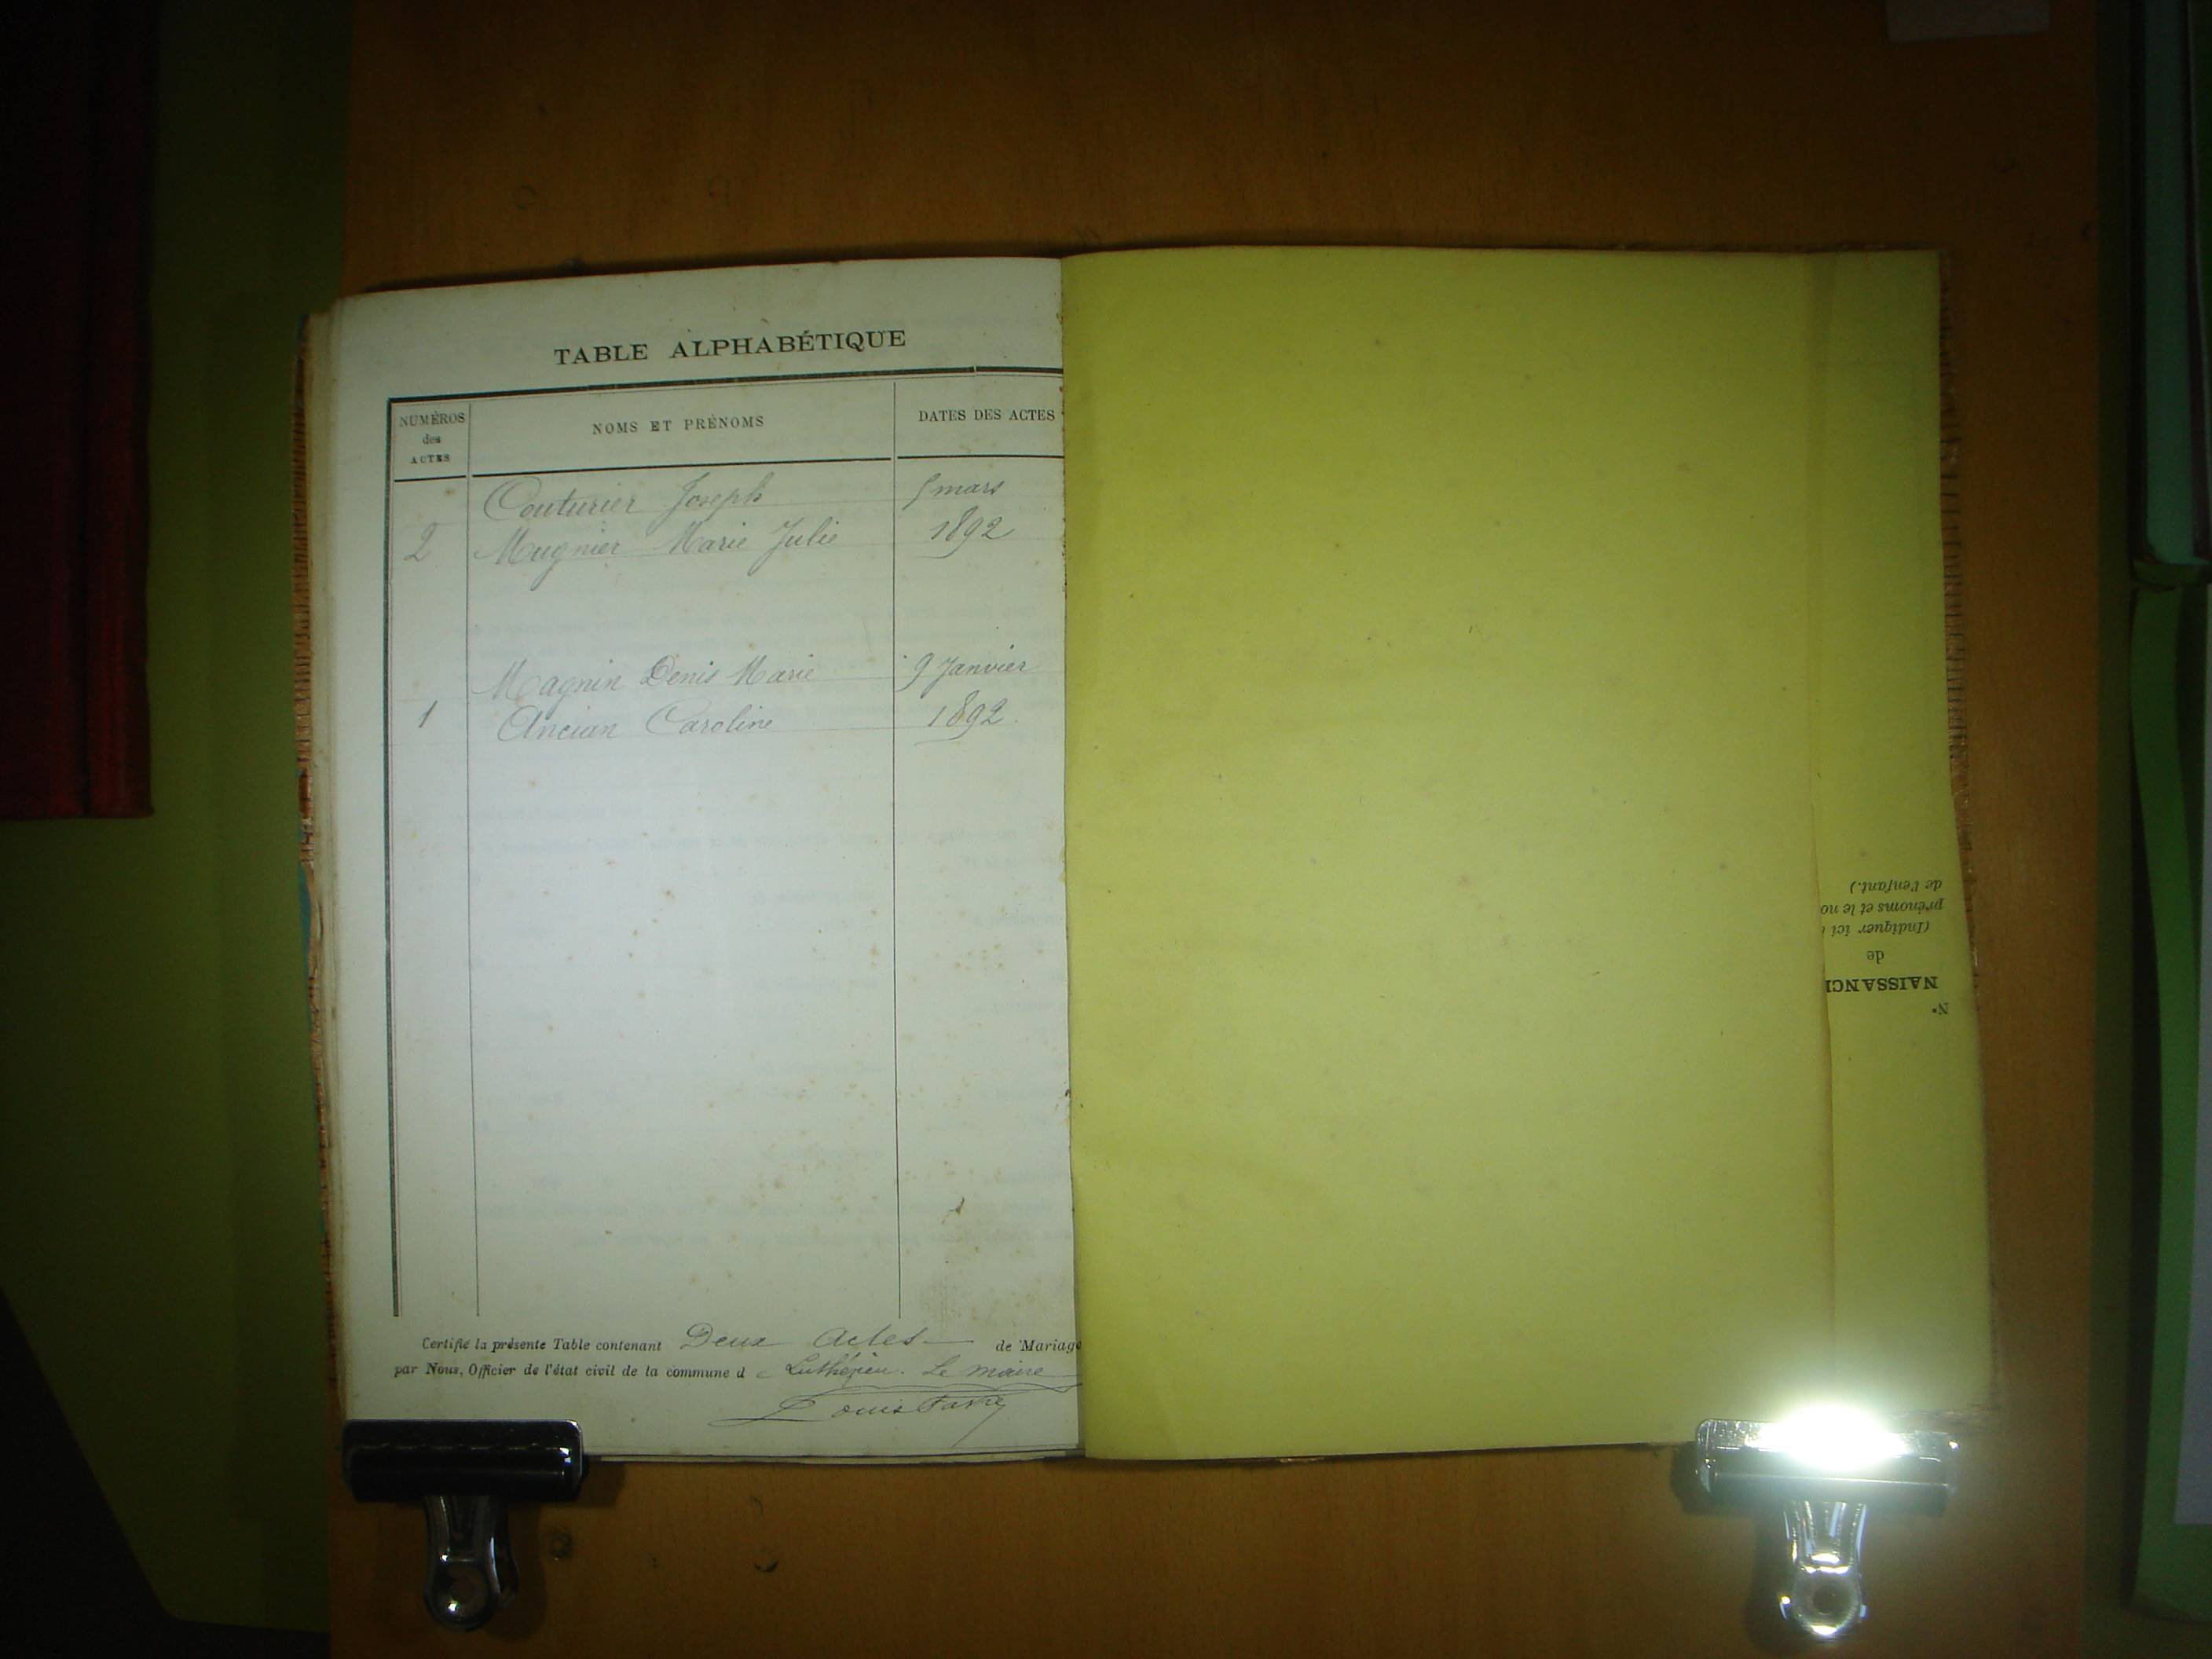 TABLE ALPHABÉTIQUE
NUMÉROS
des
ACTES
NOMS ET PRÉNOMS
DATES DES ACTES
Couturier Joseph
mars
2 Mugnier Marie Julie 1892
Magnin Denis Marie 9 Janvier
1 Ancian Caroline 1892
Certifié la présente Table contenant Deux Actes de Mariage
par Nous, Officier de l'état civil de la commune d Luthézieu. Le maire
Louis Favre
N°
NAISSANC
de
(Indiquer ici
prénoms et le no
de l'enfant.)